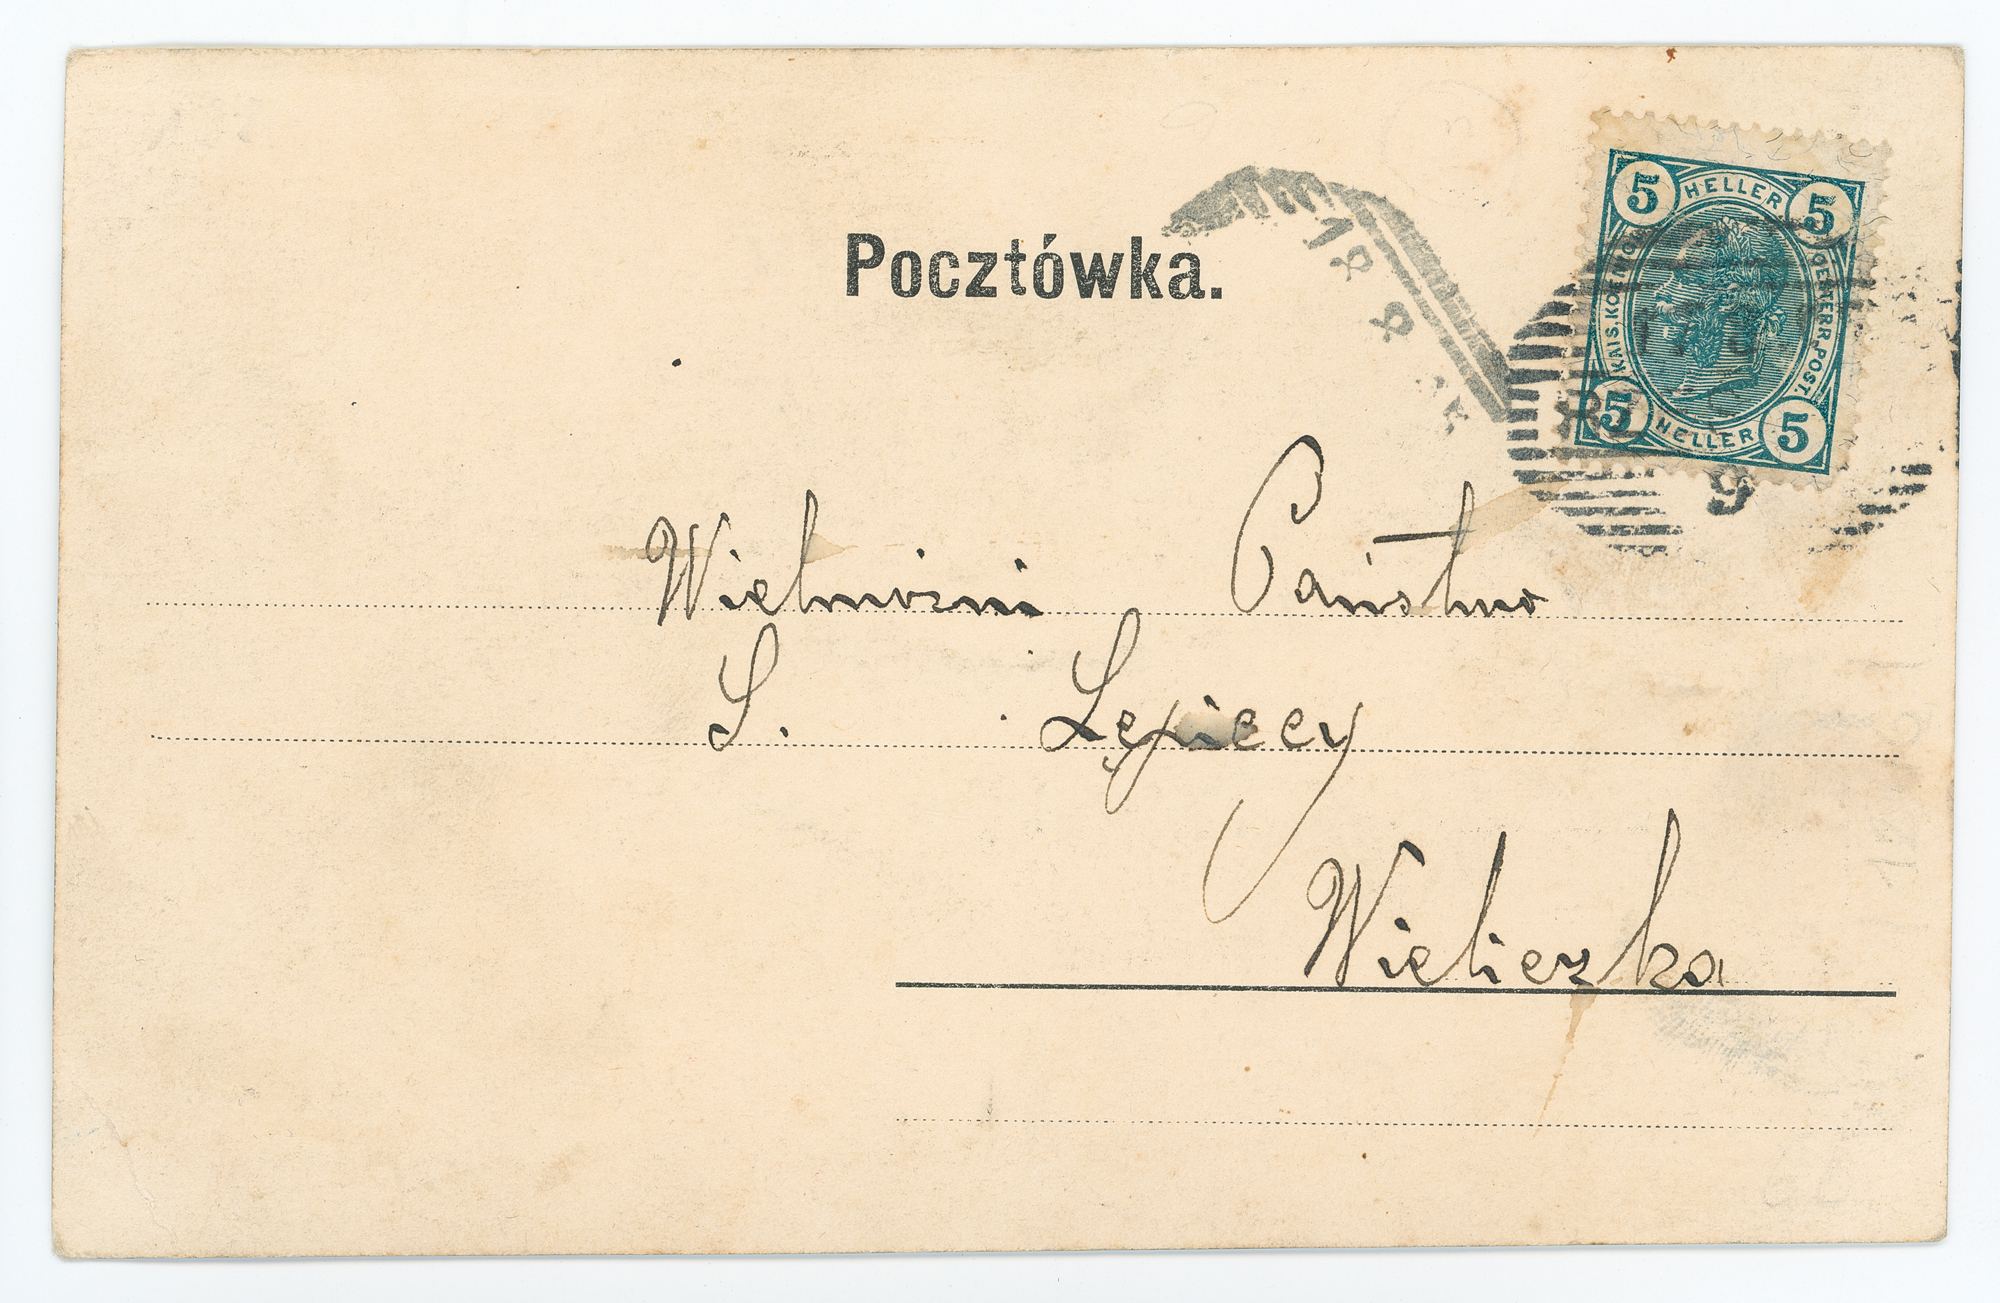 Pocztówka.
5 HELLER 5
KAIS. KOENIGL.
OESTERR. POST.
5 HELLER 5
18 8
9
Wielmożni Państwo
S. Łępiccy
Wieliczka